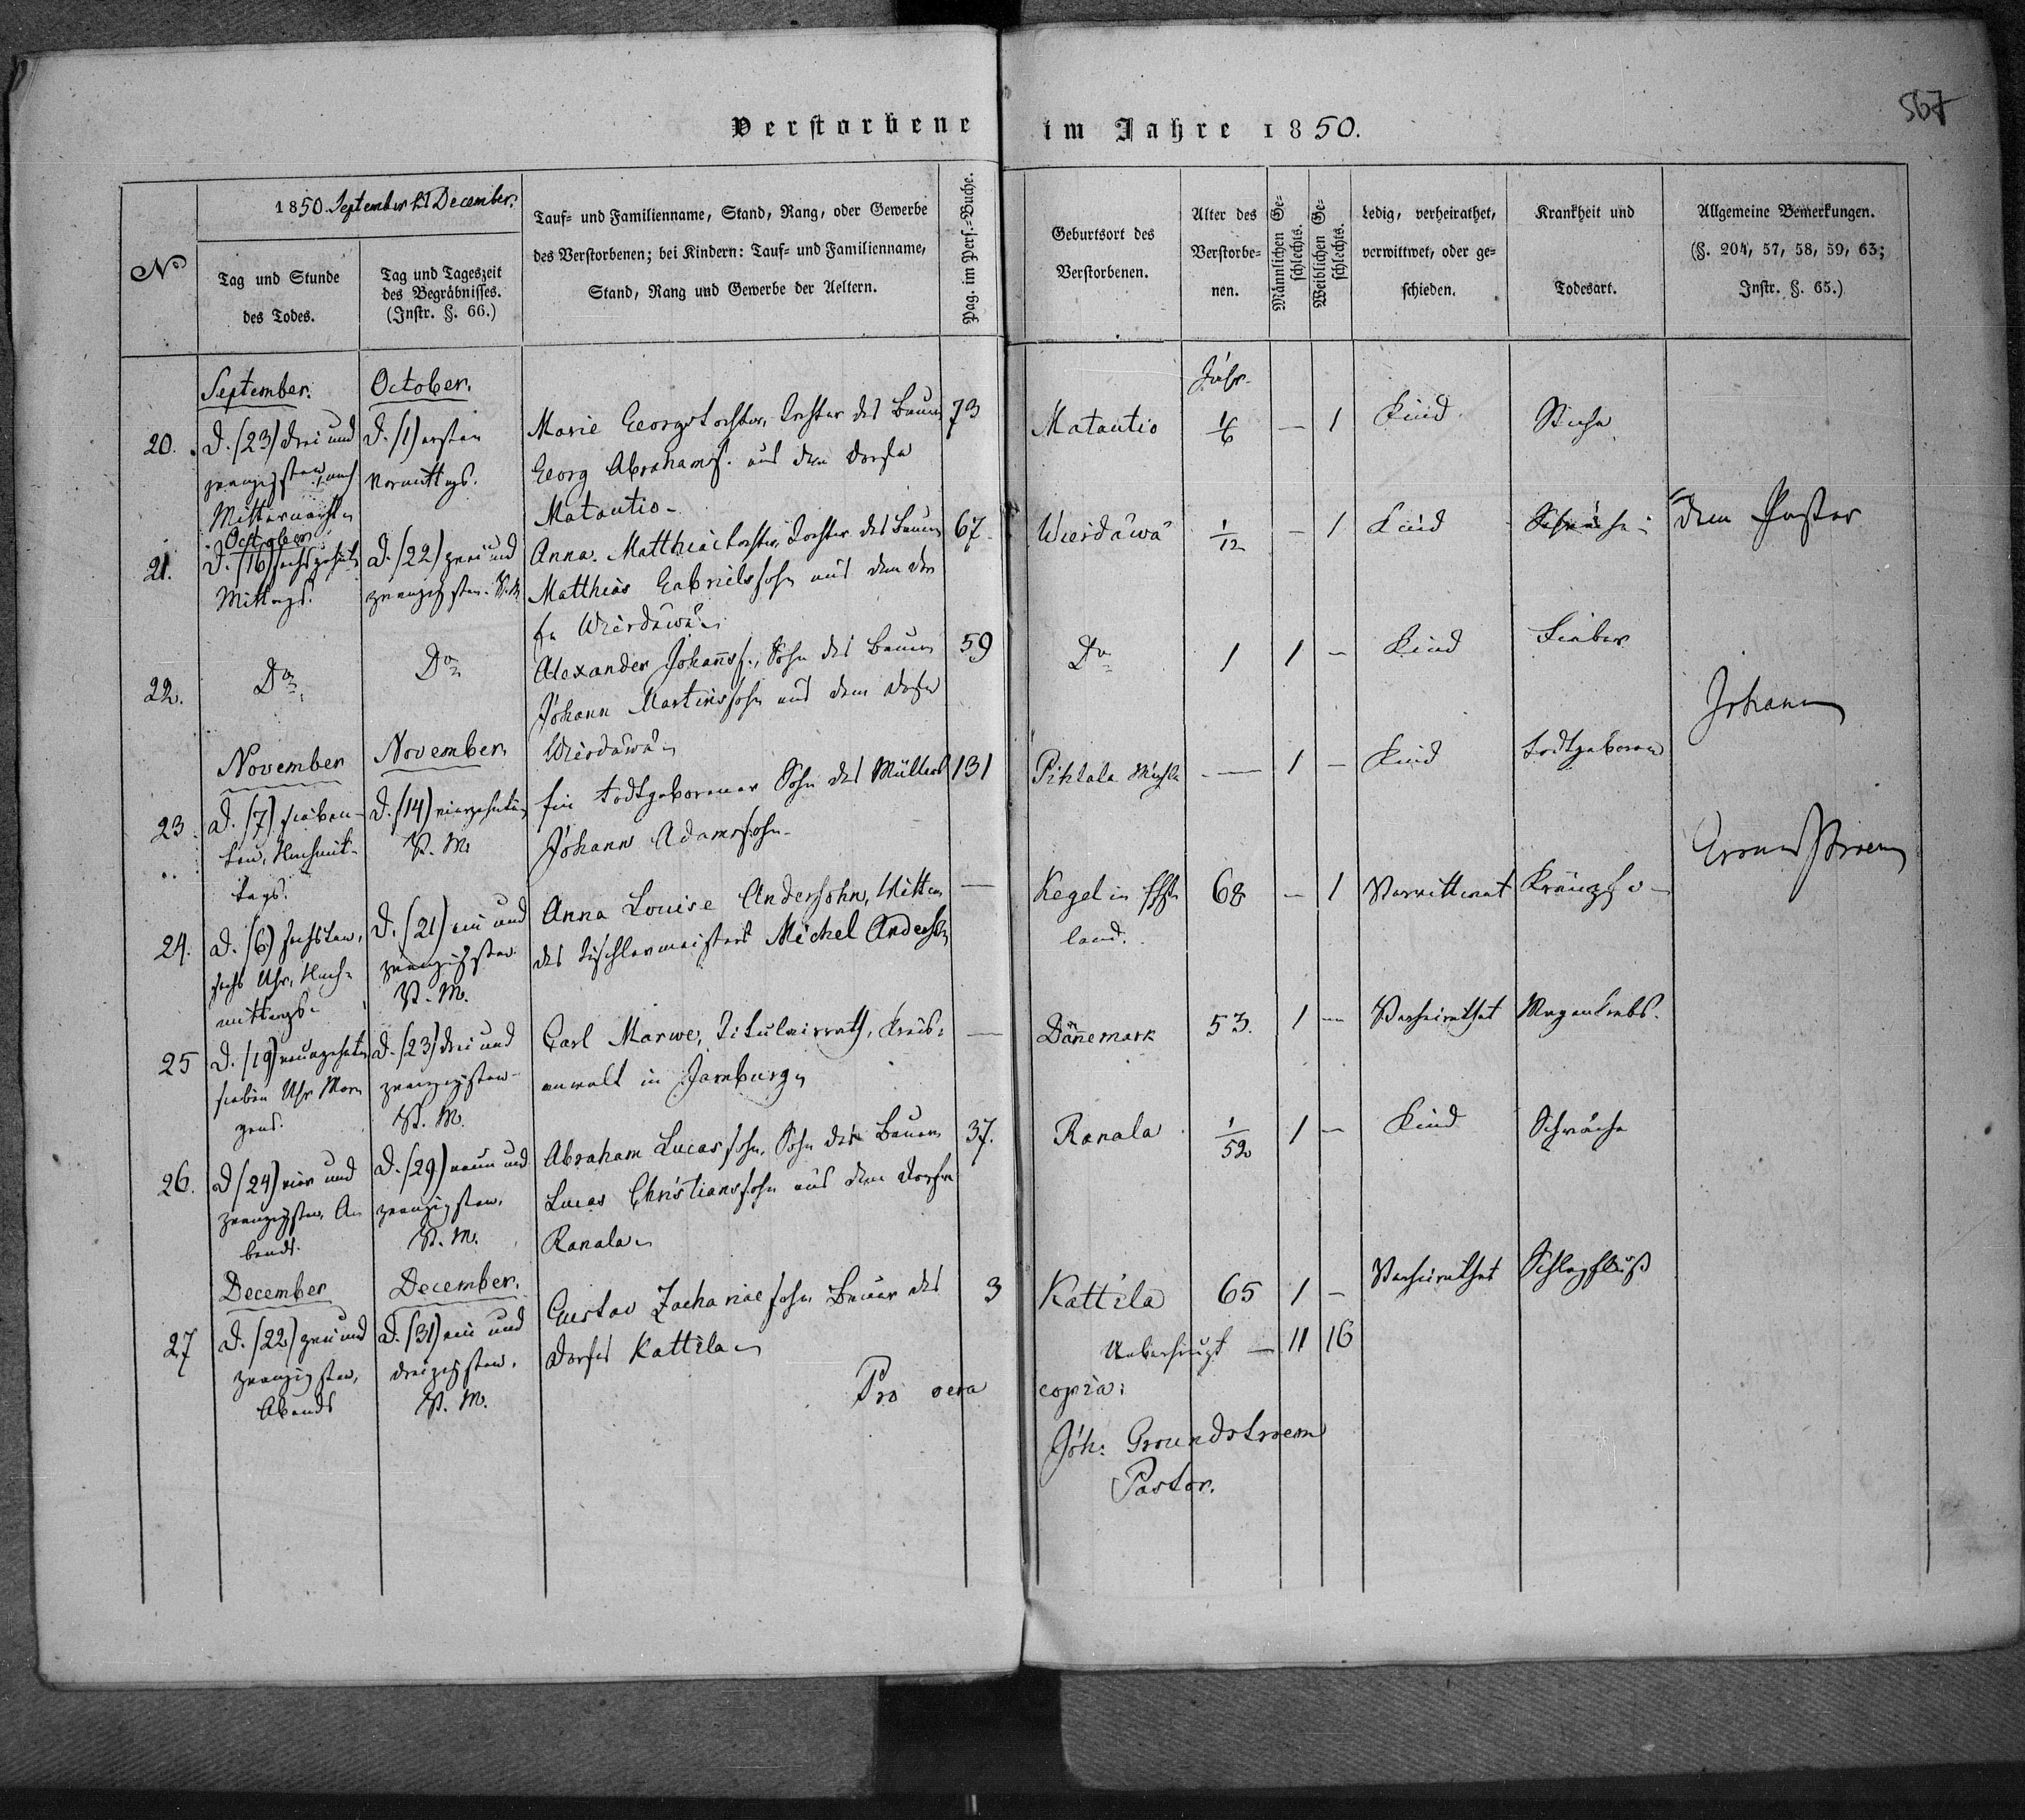 567
Verstorbene im Jahre 1850.
1850. September bis December.
No
Tag und Stunde
des Todes.
Tag und Tageszeit
des Begräbnisses.
(Instr. §. 66.)
Tauf= und Familienname, Stand, Rang, oder Gewerbe
des Verstorbenen; bei Kindern: Tauf= und Familienname,
Stand, Rang und Gewerbe der Aeltern.
Pag. im Pers.=Buche.
Geburtsort des
Verstorbenen.
Alter des
Verstorbe=
nen.
Männlichen Ge=
schlechts.
Weiblichen Ge=
schlechts.
Ledig, verheirathet,
verwittwet, oder ge=
schieden.
Krankheit und
Todesart.
Allgemeine Bemerkungen.
(§. 204, 57, 58, 59, 63;
Instr. §. 65.)
September.
October.
Jahr.
20. D. (23) drei und
zwanzigsten, nach
Mitternacht
D. (1) ersten
Vormittags.
Marie Georgstochter, Tochter des Bauern
Georg Abrahams. aus dem Dorfe
Matautio
73 Matautio 1/6 — 1 Kind
October
21. D. (16) sechszehnten
Mittags.
D. (22) zwei und
zwanzigsten. V. M.
Anna Matthiaitochter, Tochter des Bauern
Matthias Gabrielssohn aus dem Dor
fe Wierdäwä
67. Wierdäwä 1/12 — 1 Kind Schwäche
dem Pastor
22. Do Do
Alexander Johanns., Sohn des Bauern
Johann Martinssohn aus dem Dorfe
Wierdäwä
59 Do 1 1 — Kind Fieber
Johann
November November
23. D. (7) sieben-
ten, Nachmit-
tags.
D. (14) vierzehnten
V. M.
Ein todtgeborener Sohn des Müllers
Johann Adamssohn
131 Pihlala Mühle — 1 — Kind todtgeboren
Grundstroem
24. D. (6) sechsten,
sechs Uhr, Nach-
mittags.
D. (21) ein und
zwanzigsten
V. M.
Anna Louise Andersohn, Wittwe
des Tischlermeisters Michel Andersohn
— Kegel in Ehst
land. 68 — 1 Verwittwet Krämpfe
25 D. (19) neunzehnten
sieben Uhr Mor
gens.
D. (23) drei und
zwanzigsten
V. M.
Carl Marwe, Titulairrath, Kreis=
anwalt in Jamburg
— Dännemark 53. 1 — Verheirathet Magenkrebs.
26. D (24) vier und
zwanzigsten, A
bends.
D. (29) neun und
zwanzigsten,
V. M.
Abraham Lucassohn, Sohn des Bauern
Lucas Christianssohn aus dem Dorfe
Ranala
37. Ranala 1/52 1 — Kind Schwäche
December December.
27 D. (22) zwei und
zwanzigsten,
Abends
D. (31) ein und
dreizigsten,
V. M.
Gustav Zachariaesohn Bauer des
Dorfes Kattila
3 Kattila 65 1 — Verheirathet Schlagfluß
Ueberhaupt — 11 16
Pro vera copia:
Joh: Groundstroem
Pastor.